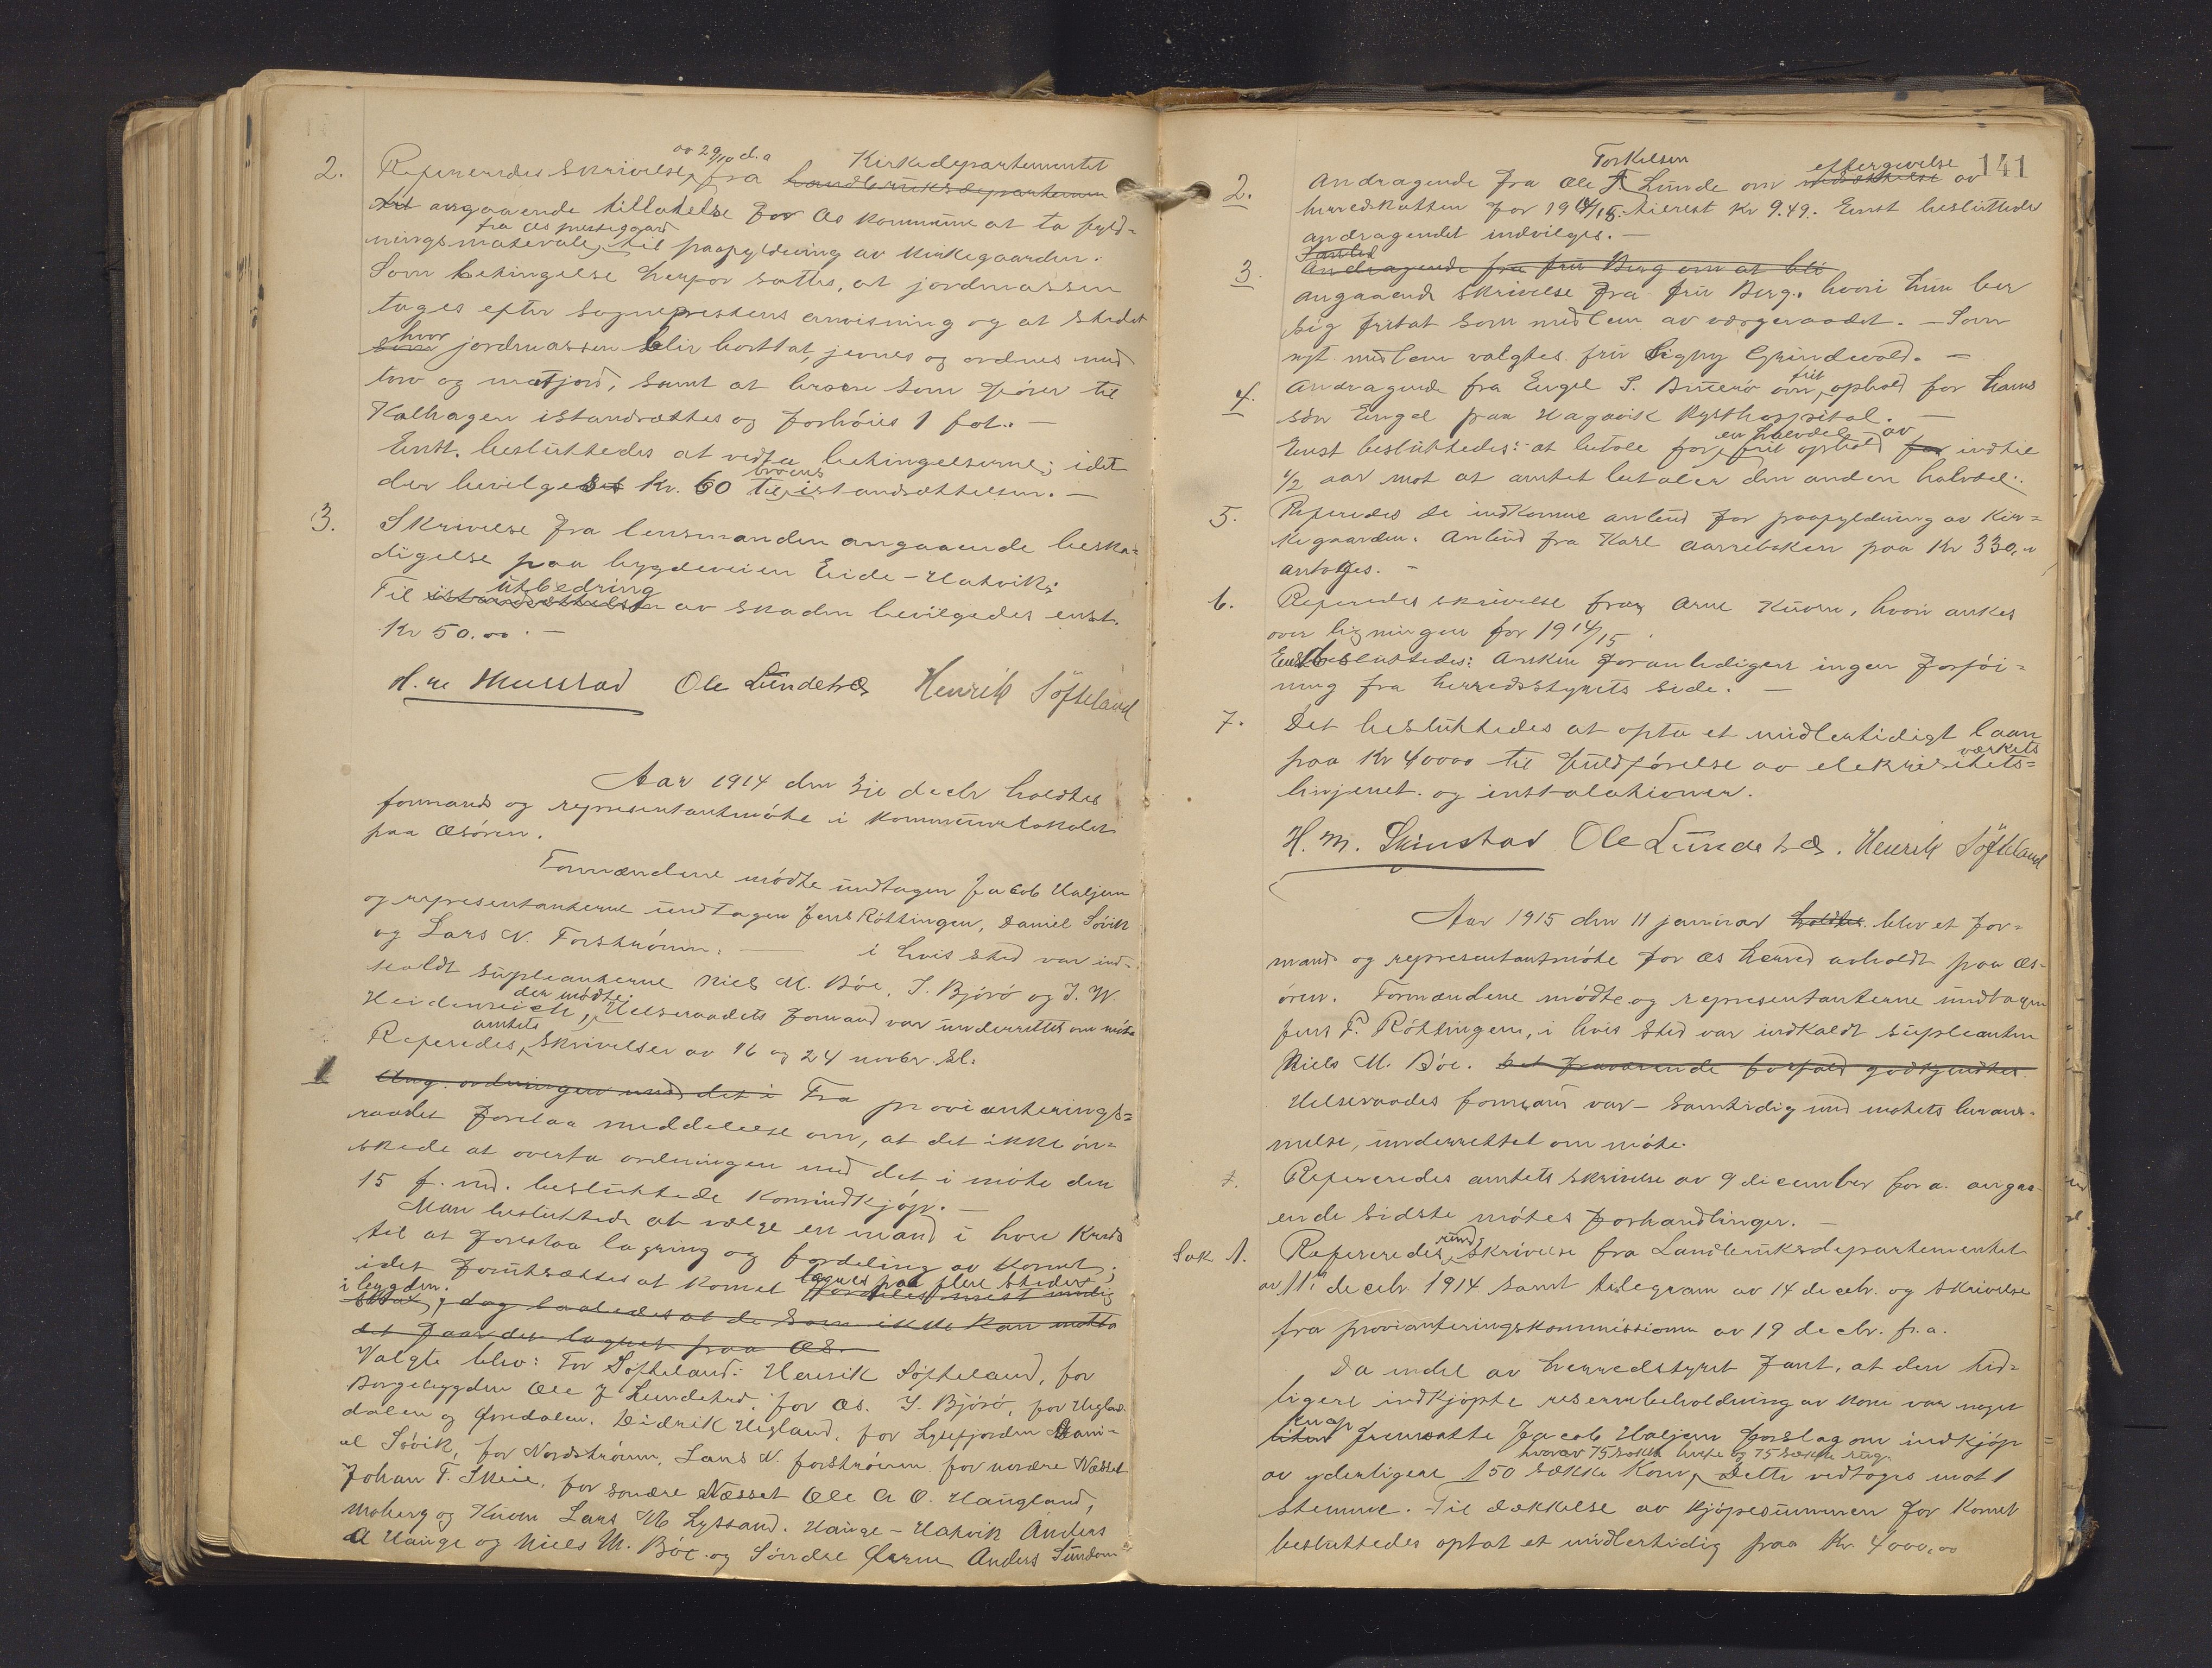 2. Refereredes skrivelse av 29/10 d.a fra Kirkedepartementet landbruksdepartemen
til angaaende tillatelse for Os kommune at ta fyld-
ningsmateriale, fra Os prestegaard til paafyldning av kirkegaarden.
Som betingelse herfor sattes, at jordmassen
tages efter sogneprestens anvisning og at stedet
som hvor jordmassen blir borttat, jevnes og ordnes med
torv og matjord, samt at broen som fører til
Kalhagen istandsættes og forhøies 1 fot. —
Enst. besluttedes at vedta betingelserne; idet
der bevilgedes Kr. 60 til broens istandsættelsen. —
3. Skrivelse fra lensmanden angaaende beska-
digelse paa bygdeveien Eide - Hatvik.
Til istandsættelsen utbedring av skaden bevilgedes enst.
Kr 50.00. —
Ole Lundetræ Henrik Søfteland
Aar 1914 den 3je decbr holdtes
formands og representantmøte i kommunelokalet
paa Osøren.
Formændene mødte undtagen Jacob Haljem
og representanterne undtagen Jens Røttingen, Daniel Søvik
og Lars N. Forstrønen: — i hvis sted var ind-
kaldt supleanterne Niels M. Bøe, J. Bjørø og J. W.
Heidenreich, der mødte. Helseraadets formand var underrettet om møte
Referedes, amtets skrivelser av 16 og 24 novbr. sl.
1 Ang. ordningen med det i Fra provianterings-
raadet forelaa meddelelse om, at det ikke øn-
skede at overta ordningen med det i møte den
15 f. md. besluttede kornindkjøp. —
Man besluttede at vælge en mand i hver kreds
til at forestaa lagring og fordeling av kornet,
idet forutsættes at kornet lagres paa flere steder
i bygden. fordeles mest mulig
dog saaledes at de som ikke kan motta
det faar det lagret paa Os.
Valgte blev: For Søfteland: Henrik Søfteland, for
Borgebygden Ole J Lundetræ, for Os. J. Bjørø, for Hegglan-
dalen og Øvredalen. Didrik Hegland, for Lysefjorden Dani-
el Søvik, for Nordstrønen, Lars N. Forstrønen for nordre Næsset
Johan F. Skeie, for søndre Næsset Ole A O. Haugland,
Moberg og Kuven Lars M Lyssand. Hauge - Hatvik Anders
A Hauge og Niels M. Bøe og Søndre Anders Sundøen
141
2. Andragende fra Ole T Torkelsen Lunde om eftergivelse av
herredskatten for 1914/15. tilrest Kr 9.49. Enst besluttedes
andragendet indvilges. —
3. Andragende fra fru Berg om at bli
angaaende skrivelse fra fru Berg. hvori hun ber
sig fritat som medlem av vergeraadet. — Som
nyt medlem valgtes fru Signy Grindevold. —
4. Andragende fra Engel S. om frit ophold for hans
søn Engel paa Hagavik Kysthospital. —
Enst besluttedes: at betale for en halvdel av frit ophold for indtil
1/2 aar mot at amtet betaler den anden halvdel.
5. Referedes de indkomne anbud for paafyldning av kir-
kegaarden. Anbud fra Karl Aarrebakken paa Kr 330,00
antages. —
6. Referedes skrivelse fra Arne Kuven, hvori ankes
over ligningen for 1914/15.
Enst besluttedes: Anken foranlediger ingen forføi-
ning fra herredsstyrets side. —
7. Det besluttedes at opta et midlertidigt laan
paa Kr 40000 til fuldførelse av elektricitets-
verkets linjenet. og installationer.
Ole Lundetræ. Henrik Søfteland
Aar 1915 den 11 januar holdtes blev et for-
mands og representantmøte for Os herred avholdt paa Os-
øren. Formændene mødte og representanterne undtagen
Jens P. Røttingen, i hvis sted var indkaldt supleanten
Niels M. Bøe. Det fraværende forfald godkjendtes.
Helseraades formann var — samtidig med møtets beram-
melse, underrettet om møte.
Refereredes amtets skrivelse av 9 december for a. angaa-
ende sidste møtes forhandlinger. —
Sak 1. Refereredes rund skrivelse fra Landbruksdepartementet
av 11 decbr. 1914 samt telegram av 14 decbr. og skrivelse
fra provianteringskommissionen av 19 decbr. f.a.
Da endel av herredstyret fant, at den tid-
ligere indkjøpte reservebeholdning av korn var noget
liten knap fremsatte Jacob Haljem forslag om indkjøp
av yderligere 150 sække korn, hvorav 75 sække hvete og 75 sække rug. Dette vedtoges mot 1
stemme. Til dækkelse av kjøpesummen for kornet
besluttedes optat et midlertidig paa Kr. 4000,00